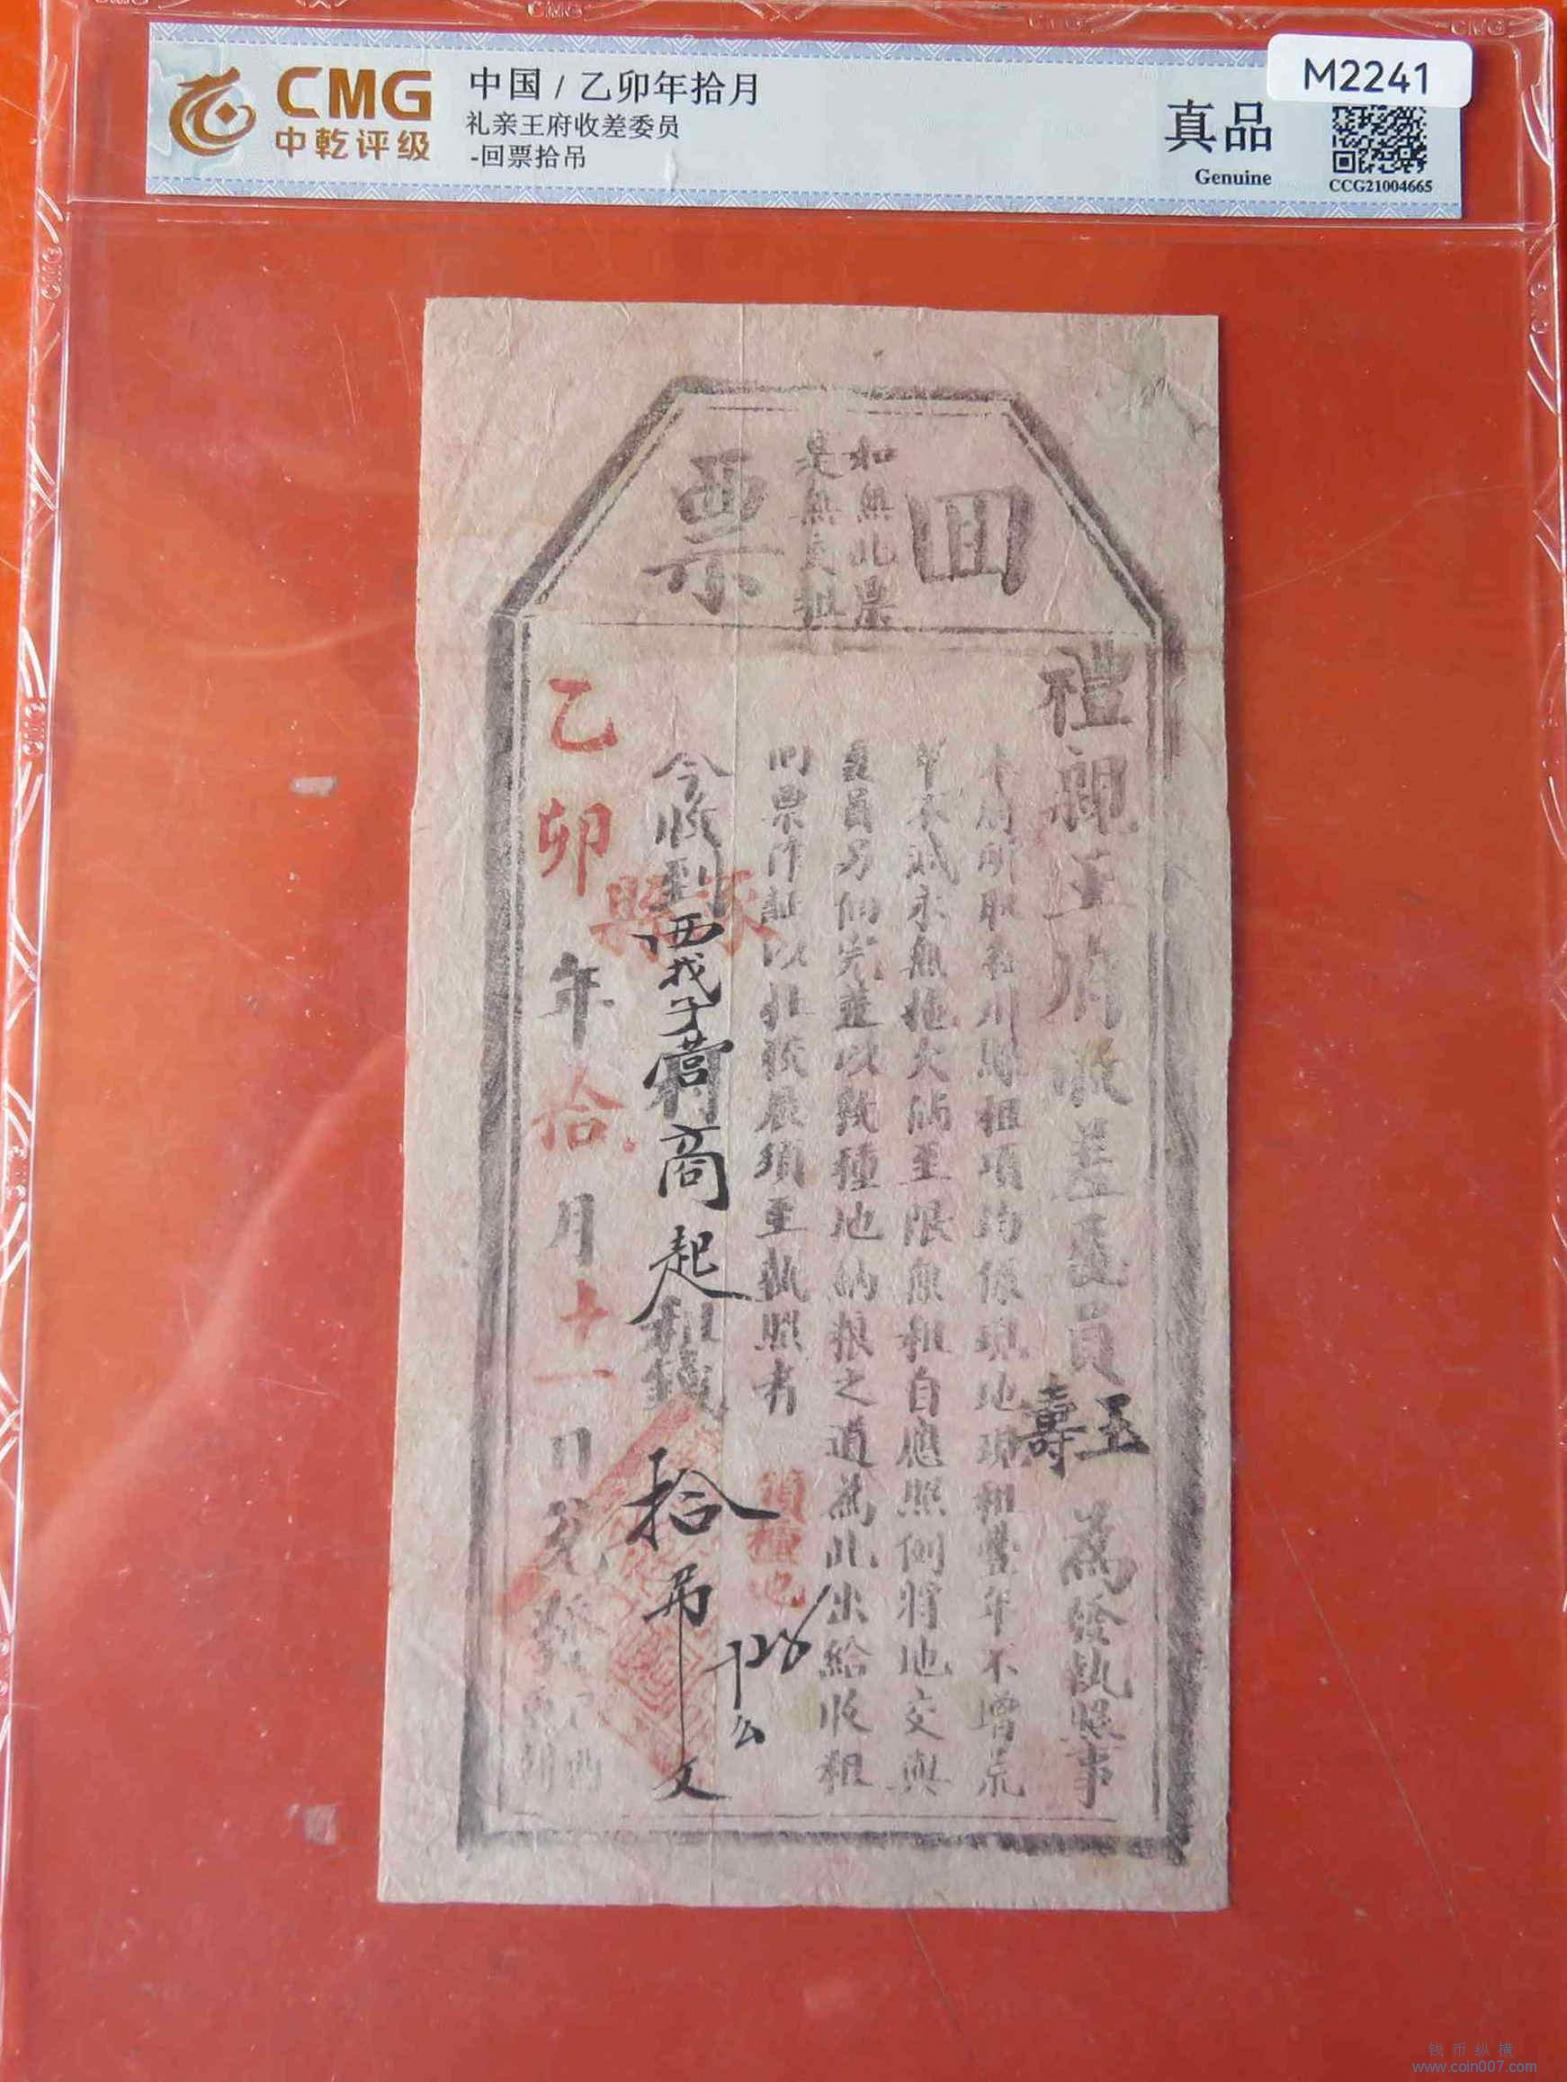 CMG
中乾评级
中国 / 乙卯年拾月
礼亲王府收差委员
-回票拾吊
真品
Genuine
M2241
CCG21004665
回票
如無此票
是無交租
禮親王府收差委員
玉
壽
為發執照事
本府所取各州縣租項均係現地現租豐年不增荒
年不減永無拖欠倘至限無租自應照例將地交與
委員另佃完
種地納粮之道為此出給收租
回票作証以杜後
須至執照者
涿縣
領種地
今收到西
子營村商起租錢拾吊
文
乙卯年拾月十一日
钱币纵横
www.coin007.com